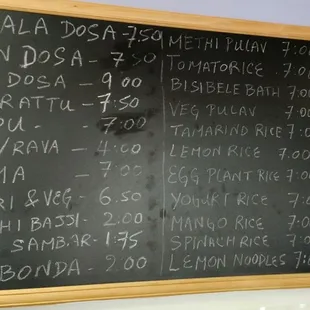 ALA DOSA - 7.50
N DOSA - 7.50
DOSA - 9.00
RATTU - 7.50
PU - 7.00
/RAVA - 4.00
MA - 7.00
RI & VEG 6.50
HI BAJJI - 2.00
SAMBAR - 1.75
BONDA - 2.00
METHI PULAV 7:0
TOMATORICE 7.0
BISIBELE BATH 7.0
VEG PULAV 7:0
TAMARIND RICE 7:0
LEMON RICE 7.00
EGG PLANT RICE 7:0
YOGURT RICE 7:0
MANGO RICE 7:0
SPINACH RICE 7:0
LEMON NOODLES 7: